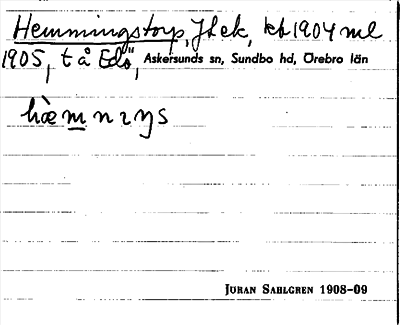 Hemmingstorp, Jhek, kb 1904 ml
1905, t å Edö", Askersunds sn, Sundbo hd, Örebro län
hæ̀mnıŋs
Juran Sahlgren 1908-09